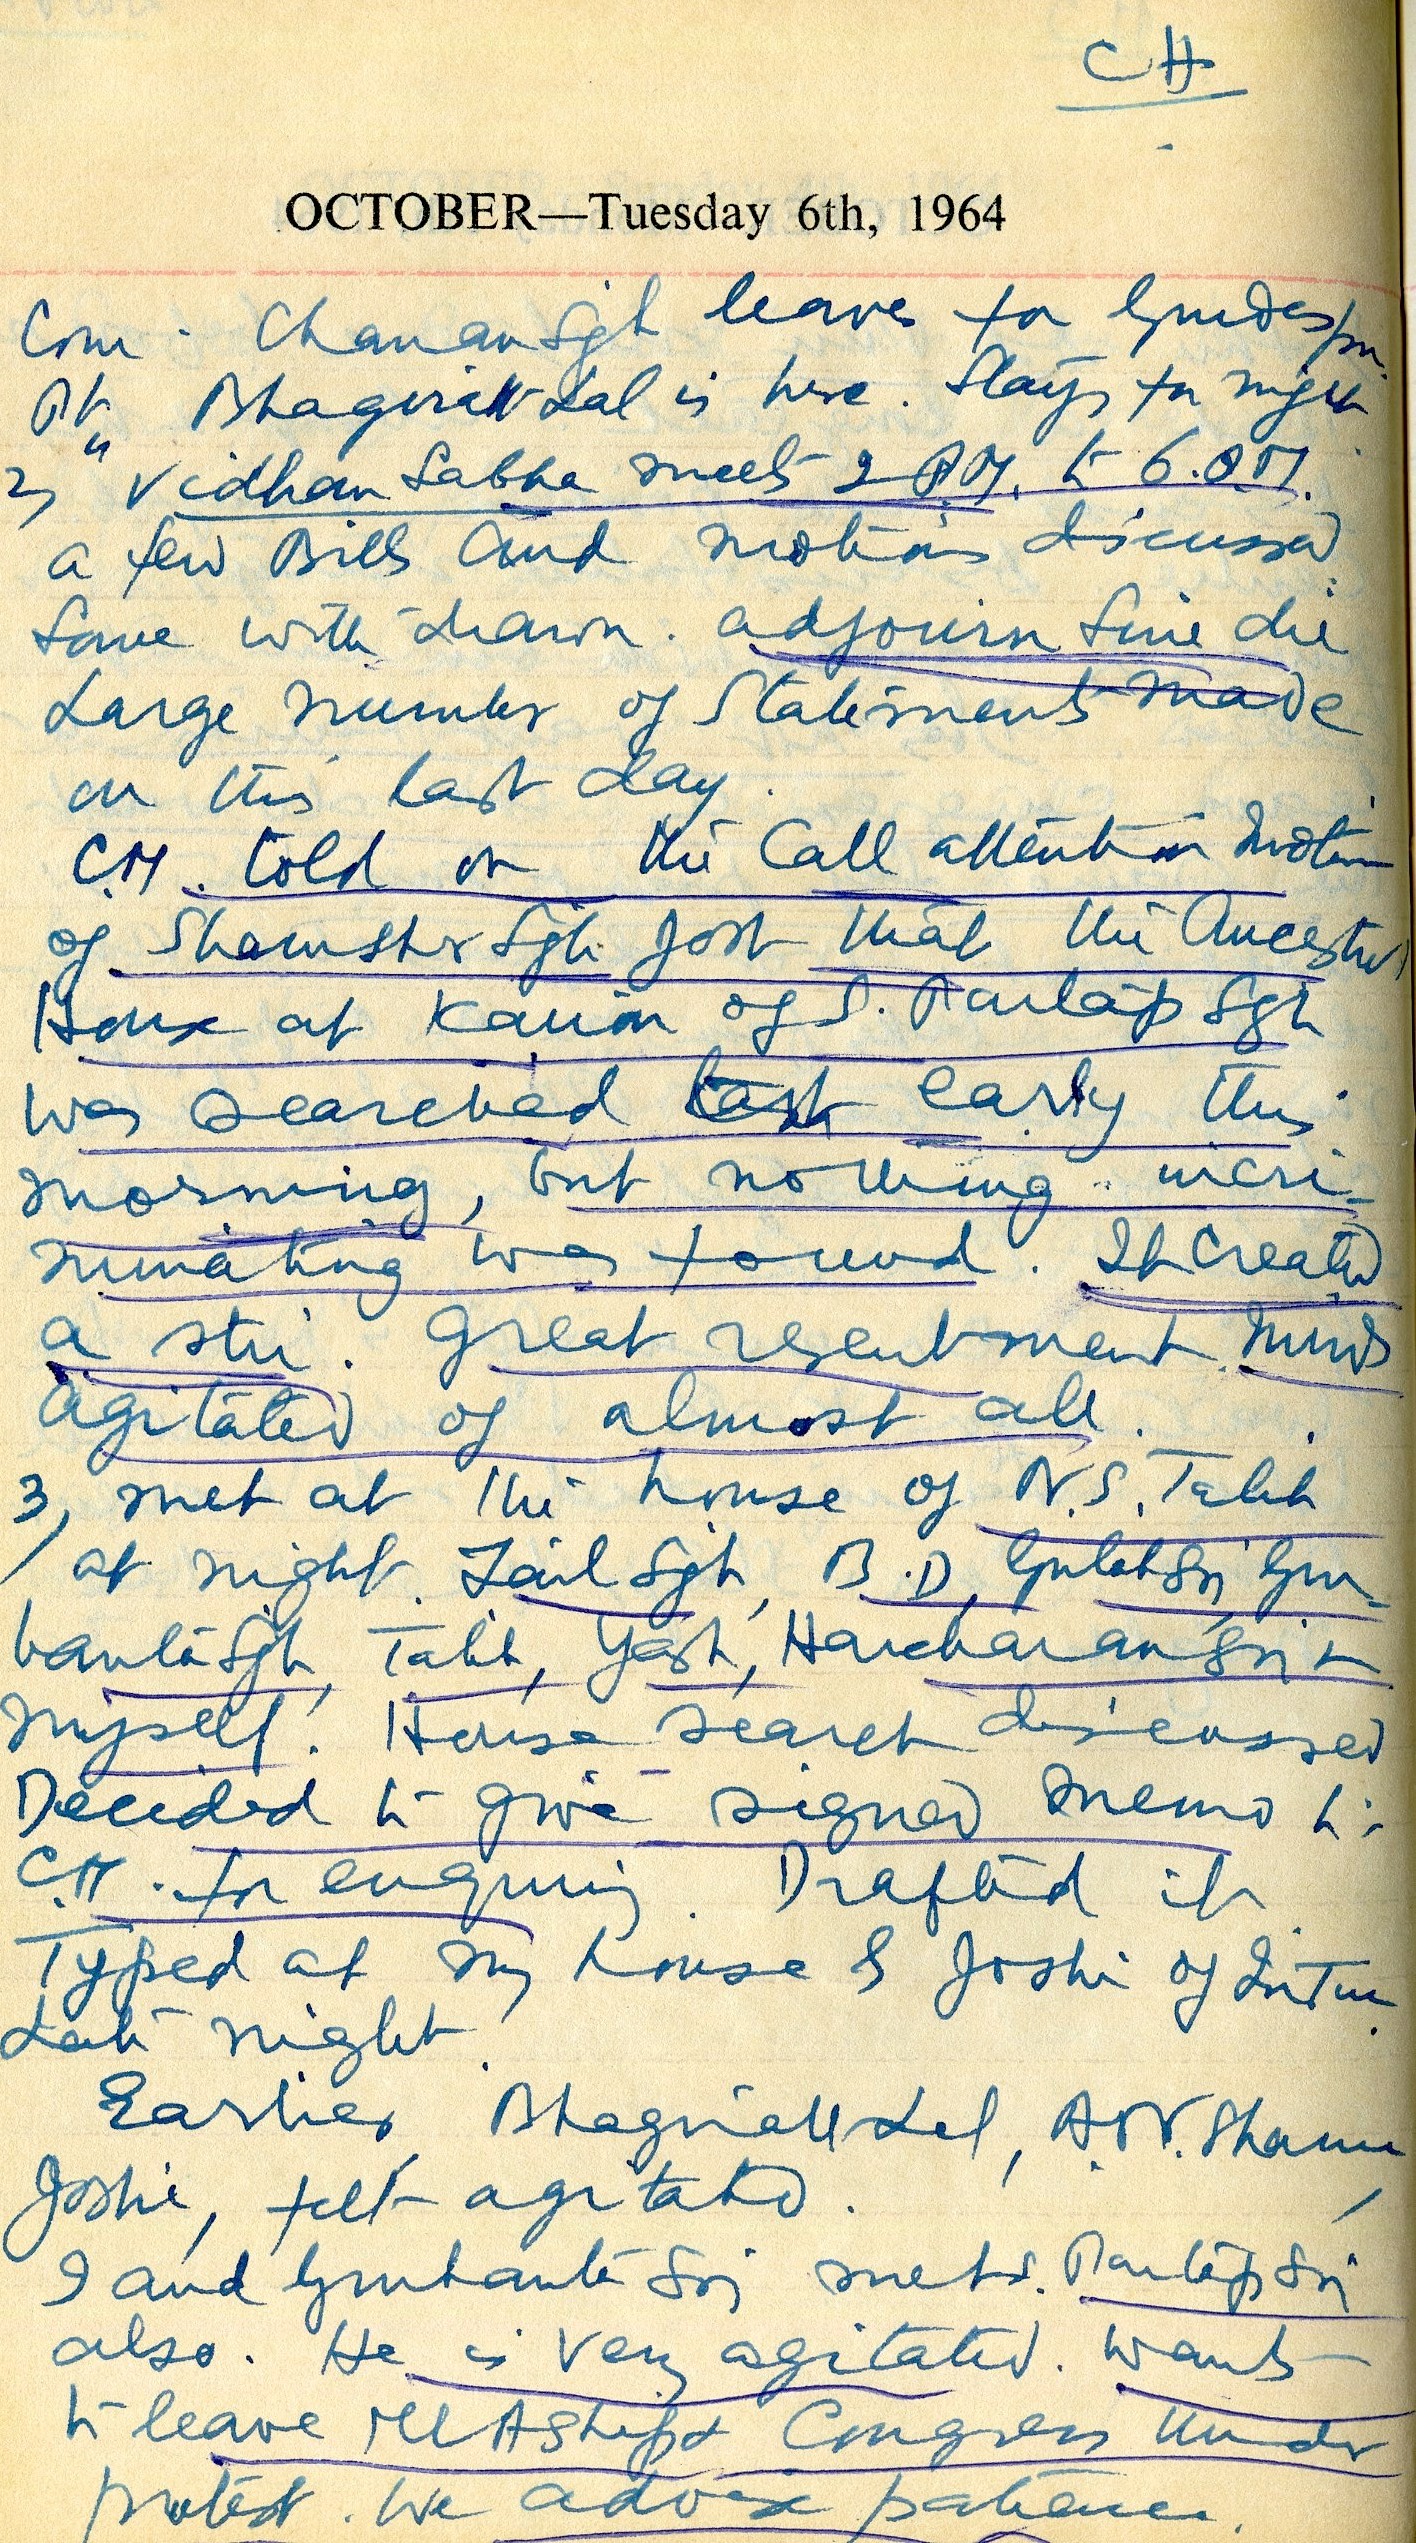 CH
OCTOBER—Tuesday 6th, 1964
Com. Chanan Sgh leaves for Gurdaspur.
Pt. Bhagirath Lal is here. Stays for night
2, " Vidhan Sabha meets 2 P.M. to 6. P.M.
a few Bills and motions discussed.
Some with drawn. adjourn Sine die
Large number of Statements made
on this last day.
C.M. told on the Call attention motion
of Shamsher Sgh Josh that the Ancestral
House at Kairon of S. Partap Sgh
was searched last early this
morning, but nothing incri-
minating was found. It created
a stir. Great resentment. Minds
agitated of almost all.
3, met at the house of N.S. Talib
at night. Zail Sgh, B.D, Gulab Sgh, Gur
banta Sgh, Talib, Yash, Harcharan Sgh &
myself. House search discussed
Decided to give signed memo to
C.M. for enquiry. Drafted it.
Typed at my house & Joshi of
Late night.
Earlier, Bhagirath Lal, A.N. Sharma,
Joshi, felt agitated.
I and Gurbanta Sgh met S. Partap Sgh
also. He is very agitated. Wants
to leave MLAship & Congress under
protest. We advise patience.